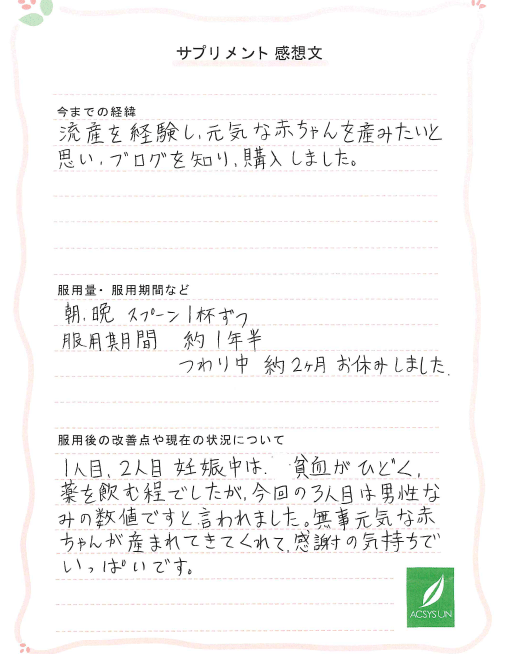 サプリメント 感想文
今までの経緯
流産を経験し、元気な赤ちゃんを産みたいと
思い、ブログを知り、購入しました。
服用量・服用期間など
朝、晩 スプーン1杯ずつ
服用期間 約1年半
つわり中 約2ヶ月 お休みしました.
服用後の改善点や現在の状況について
1人目、2人目 妊娠中は、貧血がひどく、
薬を飲む程でしたが、今回の3人目は男性な
みの数値ですと言われました。無事元気な赤
ちゃんが産まれてきてくれて、感謝の気持ちで
いっぱいです。
ACSYSUN